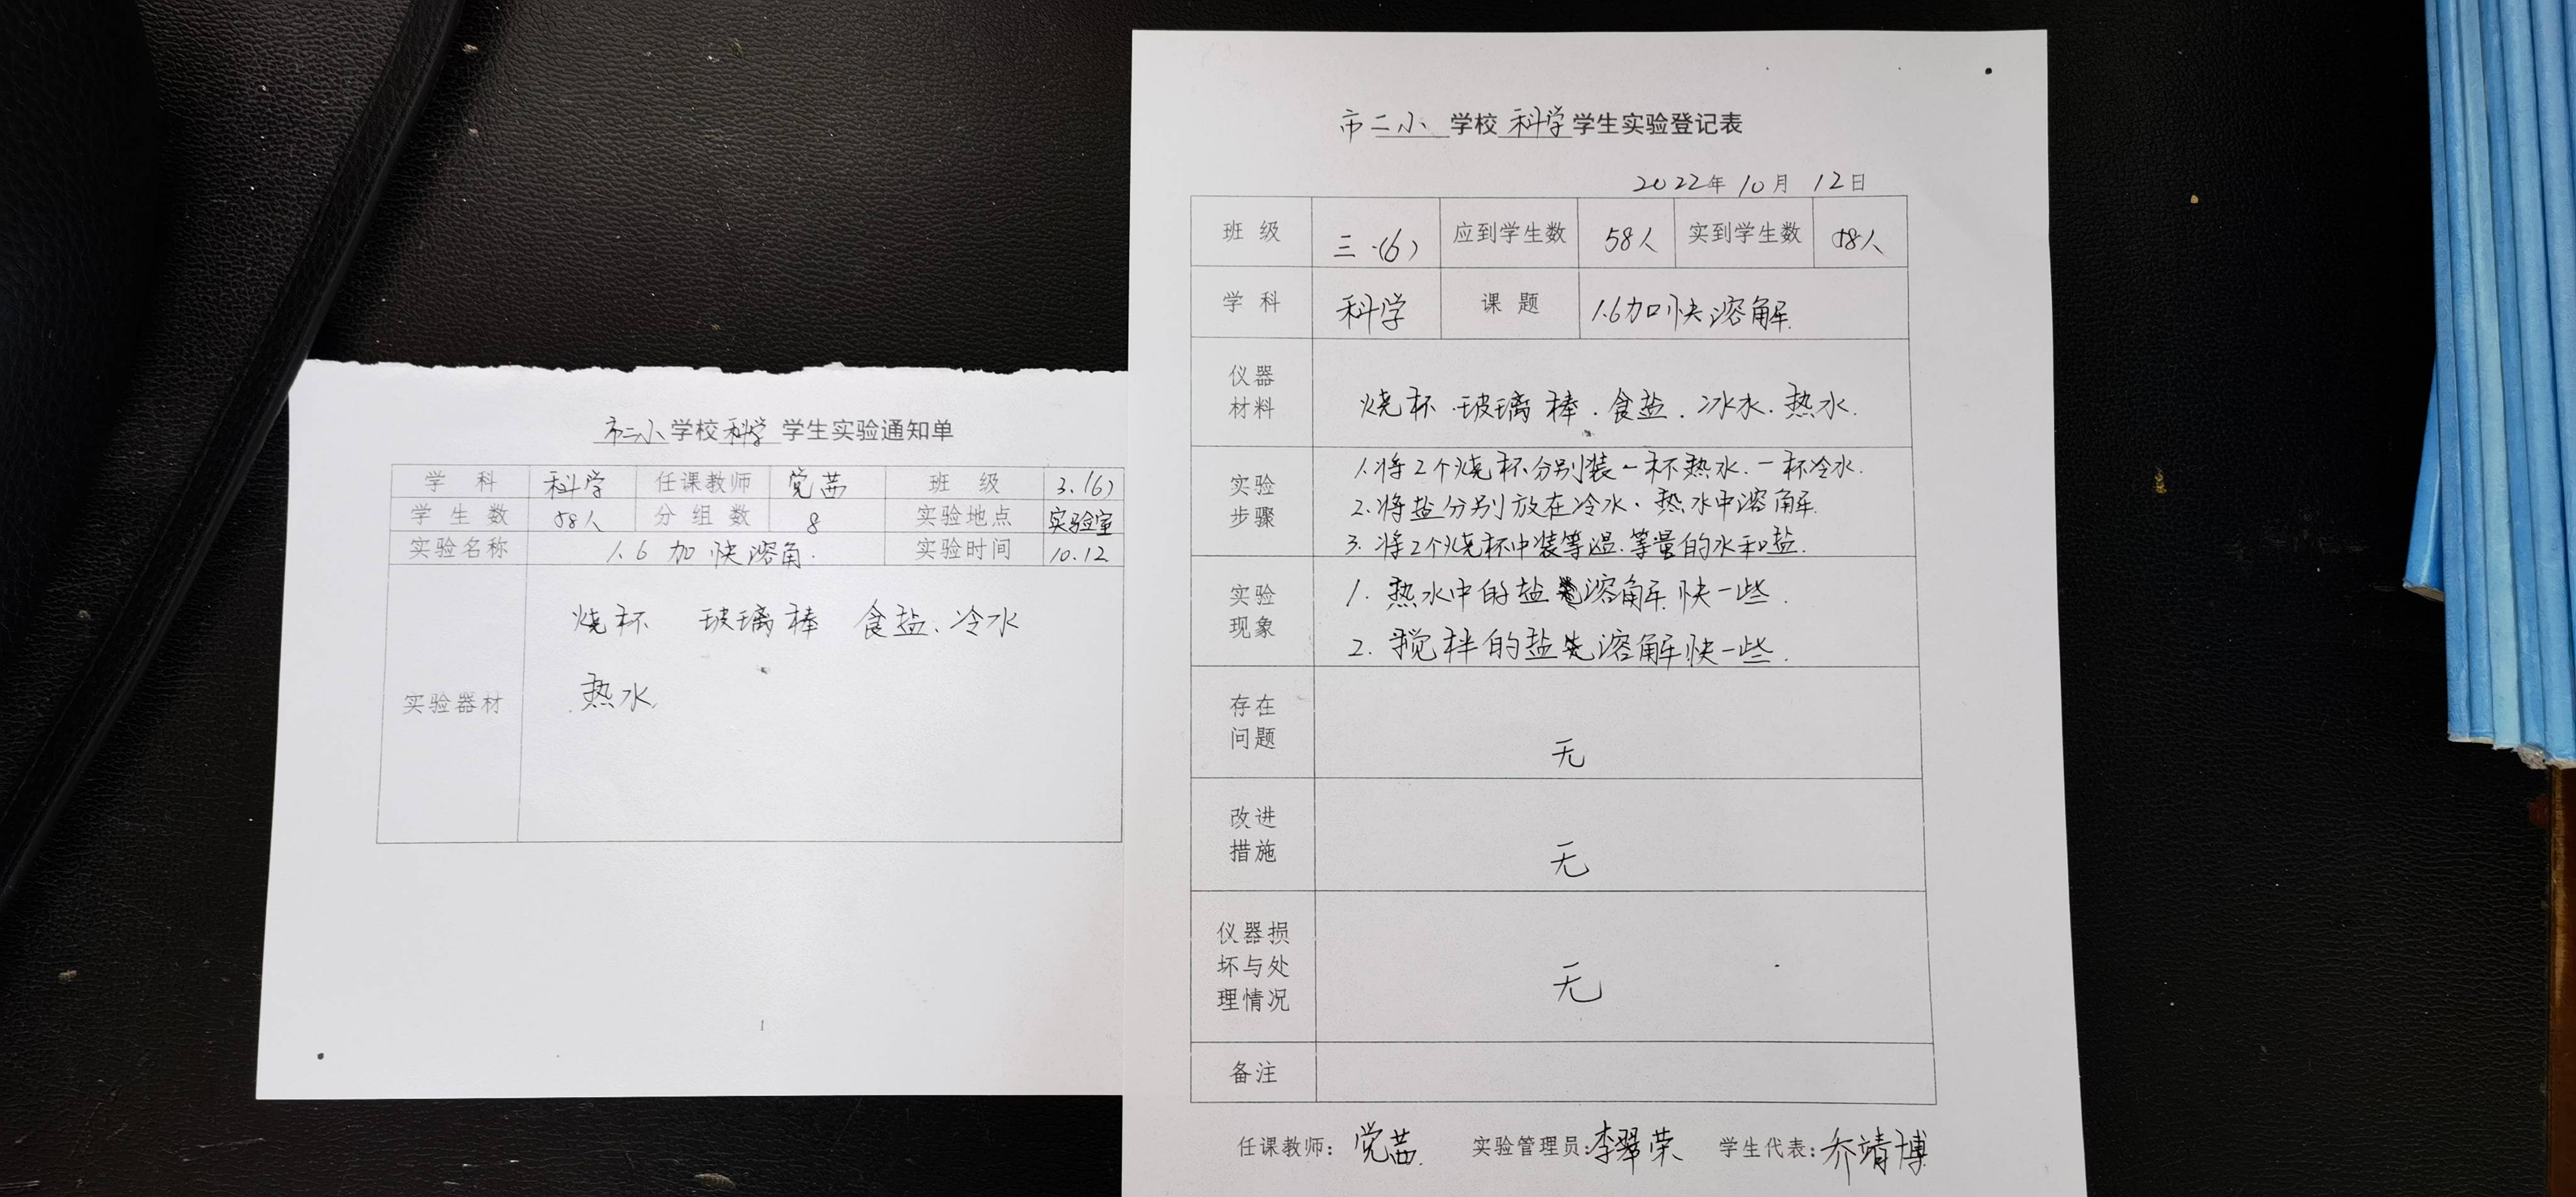 市二小学校科学学生实验通知单
学科 科学 任课教师 党茜 班级 3.(6)
学生数 58人 分组数 8 实验地点 实验室
实验名称 1.6 加快溶角. 实验时间 10.12
烧杯 玻璃棒 食盐、冷水
热水
实验器材
1
市二小学校科学学生实验登记表
2022年10月12日
班级 三.(6) 应到学生数 58人 实到学生数 58人
学科 科学 课题 1.6加快溶解.
仪器
材料
烧杯.玻璃棒.食盐.冰水.热水.
实验
步骤
1.将2个烧杯分别装一杯热水.一杯冷水.
2.将盐分别放在冷水、热水中溶解.
3.将2个烧杯中装等温.等量的水和盐.
实验
现象
1.热水中的盐溶解快一些.
2.搅拌的盐溶解快一些.
存在
问题
无
改进
措施
无
仪器损
坏与处
理情况
无
备注
任课教师: 党茜. 实验管理员:李翠荣 学生代表:乔靖博